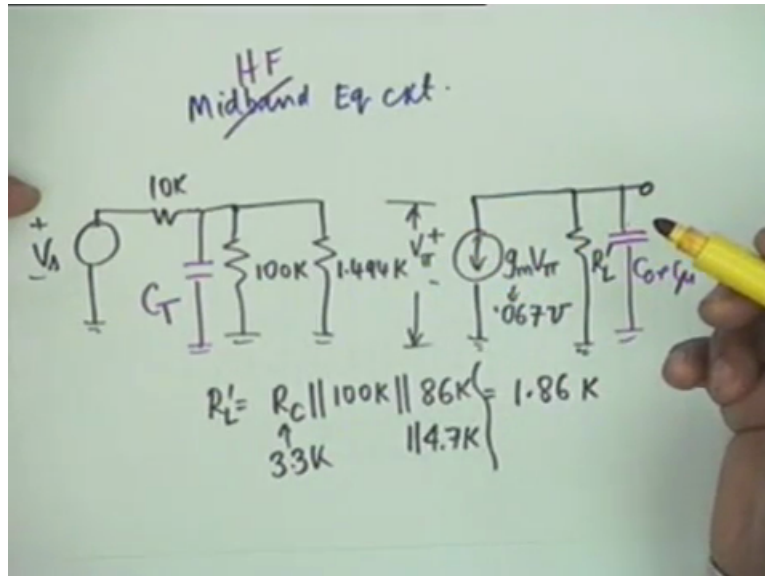 HF
Midband Eq ckt.
10K
+
Vs
-
CT
100K
1.494K
+
Vπ
-
gmVπ
.067℧
RL'
Co+Cμ
RL' = RC || 100K || 86K = 1.86 K
3.3K
|| 4.7K